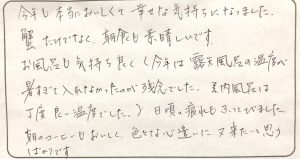 今年も本当においしくて幸せな気持ちになりました。
蟹だけでなく、朝食も素晴しいです。
お風呂も気持ち良く(今年は露天風呂の温度が
暑すぎて入れなかったのが残念でした。室内風呂は
丁度良い温度でした。)日頃の疲れもふっとびました。
朝のコーヒーもおいしく色々な心遣いに又来たいと思う
ばかりです